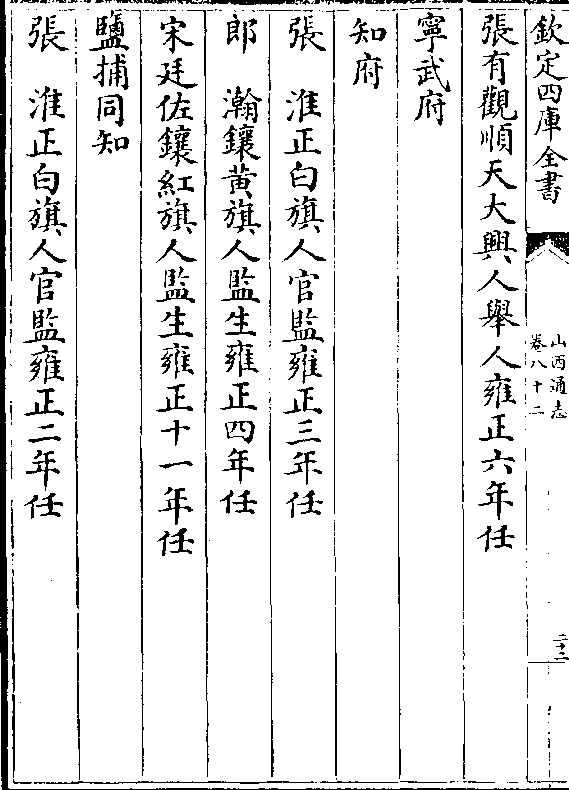 欽定四庫全書
山西通志
卷八十二
二十二
張有觀順天大興人舉人雍正六年任
寧武府
知府
張　淮正白旗人官監雍正三年任
郎　瀚鑲黃旗人監生雍正四年任
宋廷佐鑲紅旗人監生雍正十一年任
鹽捕同知
張　淮正白旗人官監雍正二年任